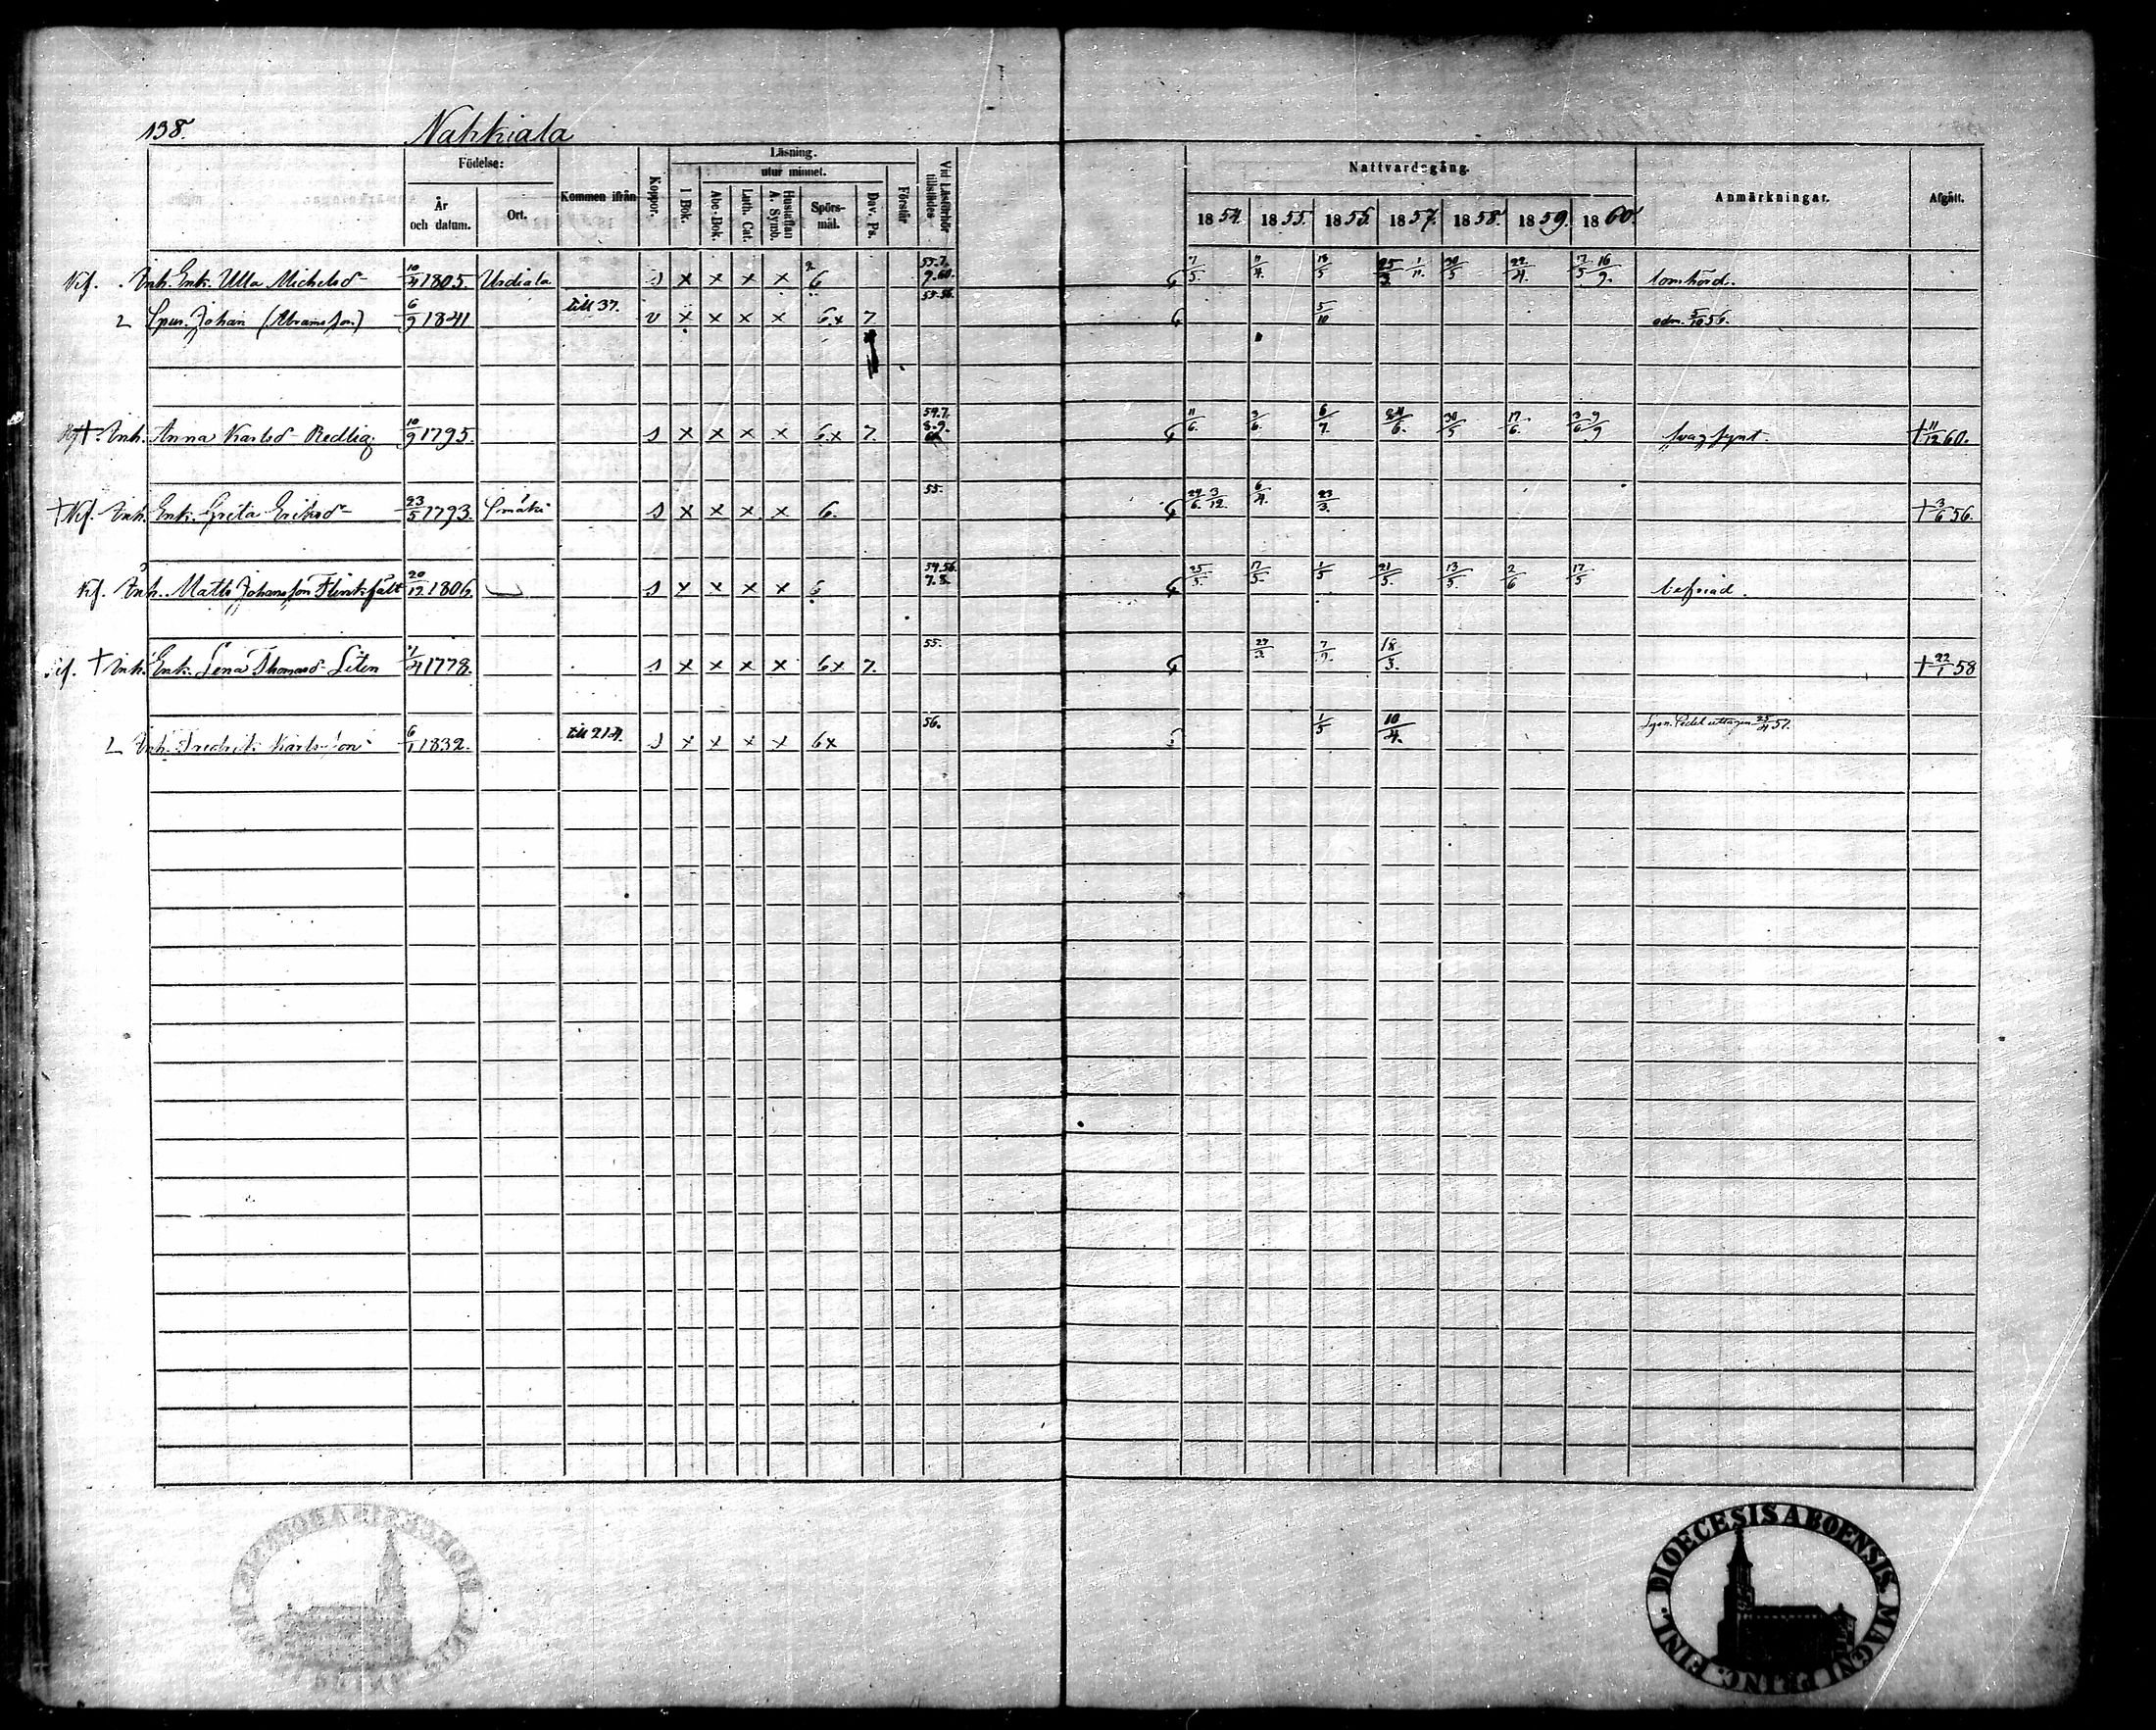 138.
Nahkiala
Födelse:
År och datum.
Ort.
Kommen ifrån
Koppor.
Läsning.
I Bok.
utur minnet.
Abc-Bok.
Luth. Cat.
Hustaflan A. Symb.
Spörs-mål.
Dav. Ps.
Förstår.
Vid Läsförhör tillstädes
Nattvardsgång.
1854. 1855. 1856. 1857. 1858. 1859. 1860.
Anmärkningar.
Afgått.
Inh. Enk. Ulla Michelsd 10/4 1805. Urdiala s x x x x 6 55.7. 9.60. 7/5 18/5 30/5 22/4 lomhörd.
Spur. Johan (Abramsson) 6/9 1841 till 37. v x x x x 6.x 7 55.56. 5/10 adm. 5/10 56.
Inh. Anna Karlsd Redlig 10/9 1795. s x x x x 6.x 7. 11/6. 6/7. 24/6. 30/5 17/6. svagsynt. † 11/12 60.
† Inh. Enk. Greta Eriksd 23/5 1793. s x x x x 6. 55. 24/6. 3/12. 6/4. 23/3. † 3/6 56.
Inh. Matts Johansson Flinkfält 20/12 1806. s x x x x 6 54.56. 7.8. 25/5. 17/5. 1/5 21/5. 13/5. 2/6 17/5 befriad.
† Inh. Enk. Lena Thomasd Liten 1778. s x x x x 6x 7. 55. 27/3. 18/3. † 22/1 58
Inh. Fredrik Karlsson 6/1 1832. till 214. s x x x x 6x 56. 1/5 10/4.
DIOECESIS ABOENSIS MAGNI PRINC. FINL.